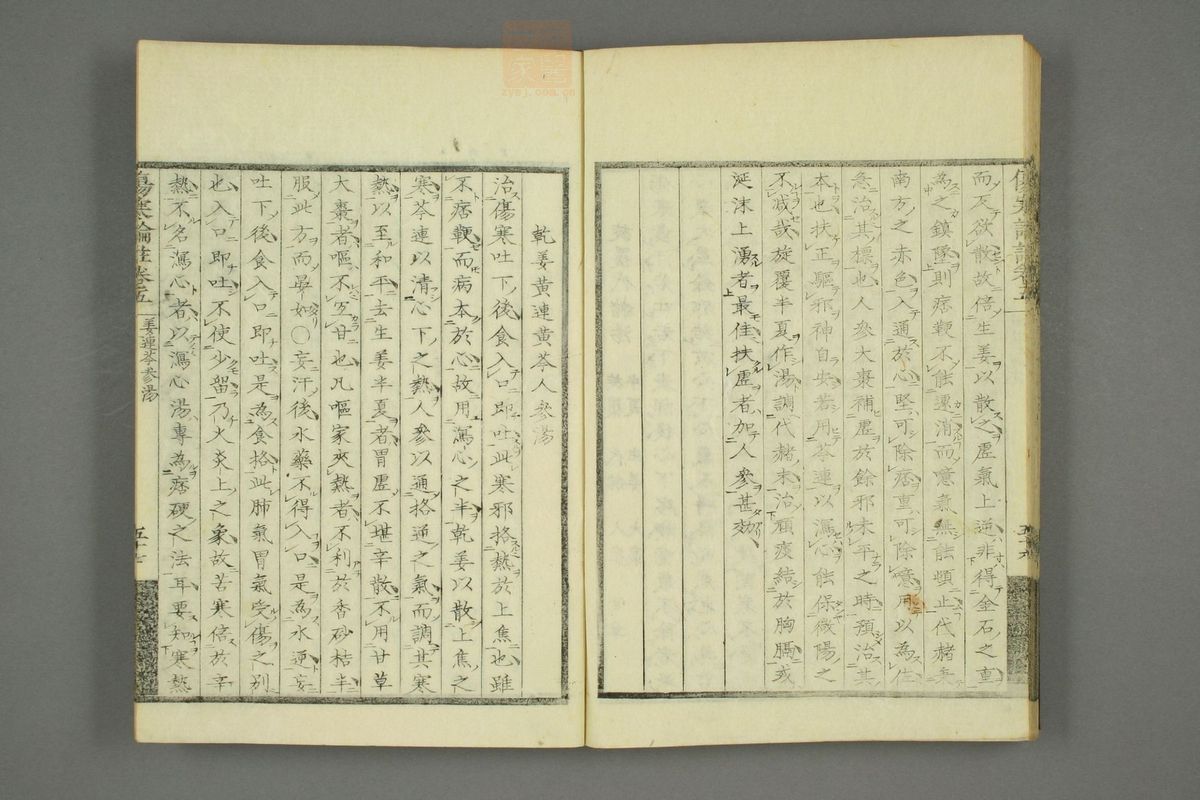 而又欲散故倍生姜以散之虛氣上逆非得金石之重
為之鎮墜則痞鞕不能遽消而噫氣無能頓止代赭秉
南方之赤色入通於心堅可除痞重可除噫用以為佐
急治其標也人參大棗補虛於餘邪未平之時預治其
本也扶正驅邪神自安若用芩連以瀉心能保微陽之
不滅哉旋覆半夏作湯調代赭末治頑痰結於胸膈或
涎沫上湧者最佳扶虛者加人參甚効
乾姜黃連黃芩人參湯
治傷寒吐下後食入口即吐此寒邪格熱於上焦也雖
不痞鞕而病本於心故用瀉心之半乾姜以散上焦之
寒芩連以清心下之熱人參以通格逆之氣而調其寒
熱以至和平去生姜半夏者胃虛不堪辛散不用甘草
大棗者嘔不宜甘也凡嘔家夾熱者不利於香砂桔半
服此方而晏如○妄汗後水藥不得入口是為水逆妄
吐下後食入口即吐是為食格此肺氣胃氣受傷之別
也入口即吐不使少留乃火炎上之象故苦寒倍於辛
熱不名瀉心者以瀉心湯專為痞硬之法耳要知寒熱
傷寒論註卷五
姜連芩參湯